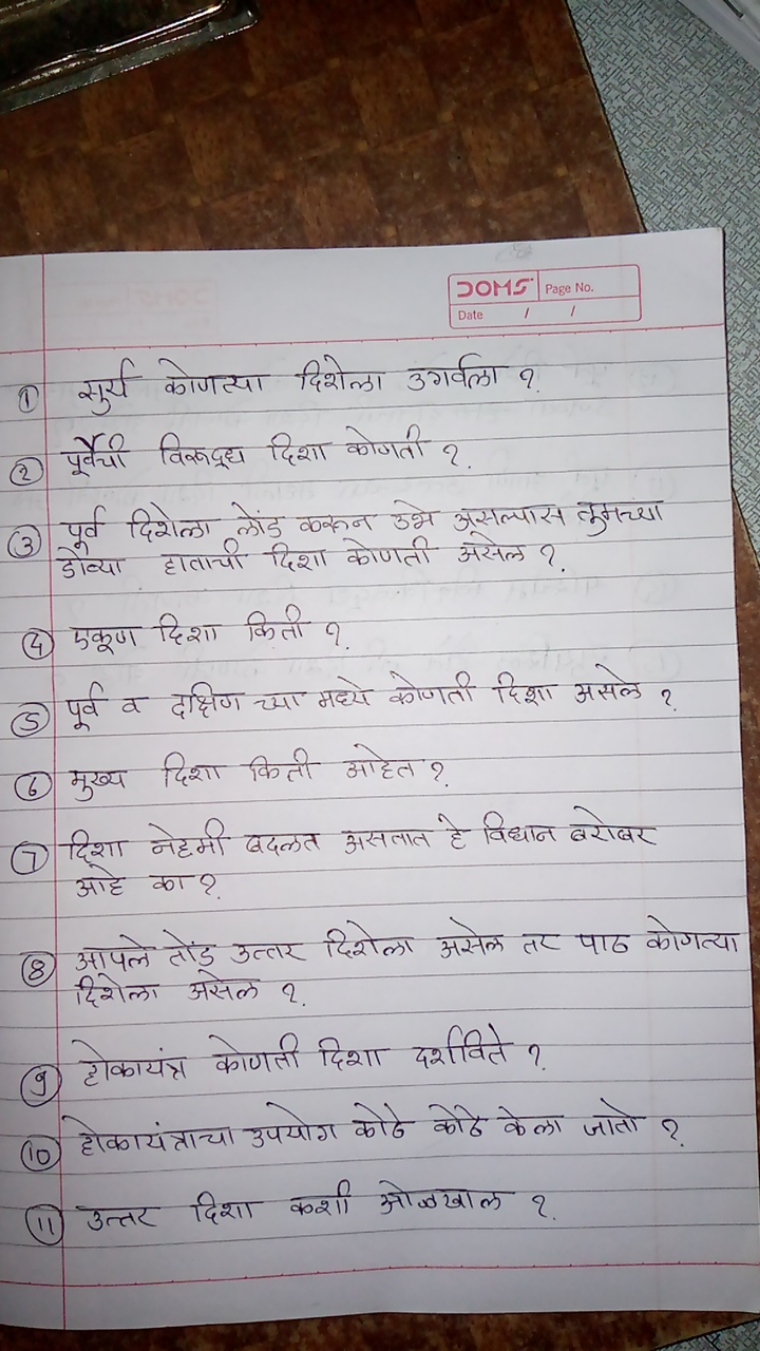 DOMS Page No.
Date / /
① सुर्य कोणत्या दिशेला उगर्वला ?
② पूर्वैची विरूद्ध दिशा कोणती ?
③ पूर्व दिशेला तोंड करून उभे असल्यास तुमच्या
डोव्या हाताची दिशा कोणती असेल ?
④ एकूण दिशा किती ?
⑤ पूर्व व दक्षिण च्या मध्ये कोणती दिशा असले ?
⑥ मुख्य दिशा किती आहेत ?
⑦ दिशा नेहमी बदलत असतात हे विधान बरोबर
आहे का ?
⑧ आपले तोंड उत्तर दिशेला असेल तर पाठ कोणत्या
दिशेला असेल ?
⑨ होकायंत्र कोणती दिशा दर्शविते ?
⑩ होकायंत्राचा उपयोग कोठे कोठे केला जातो ?
⑪ उत्तर दिशा कशी ओळखाल ?